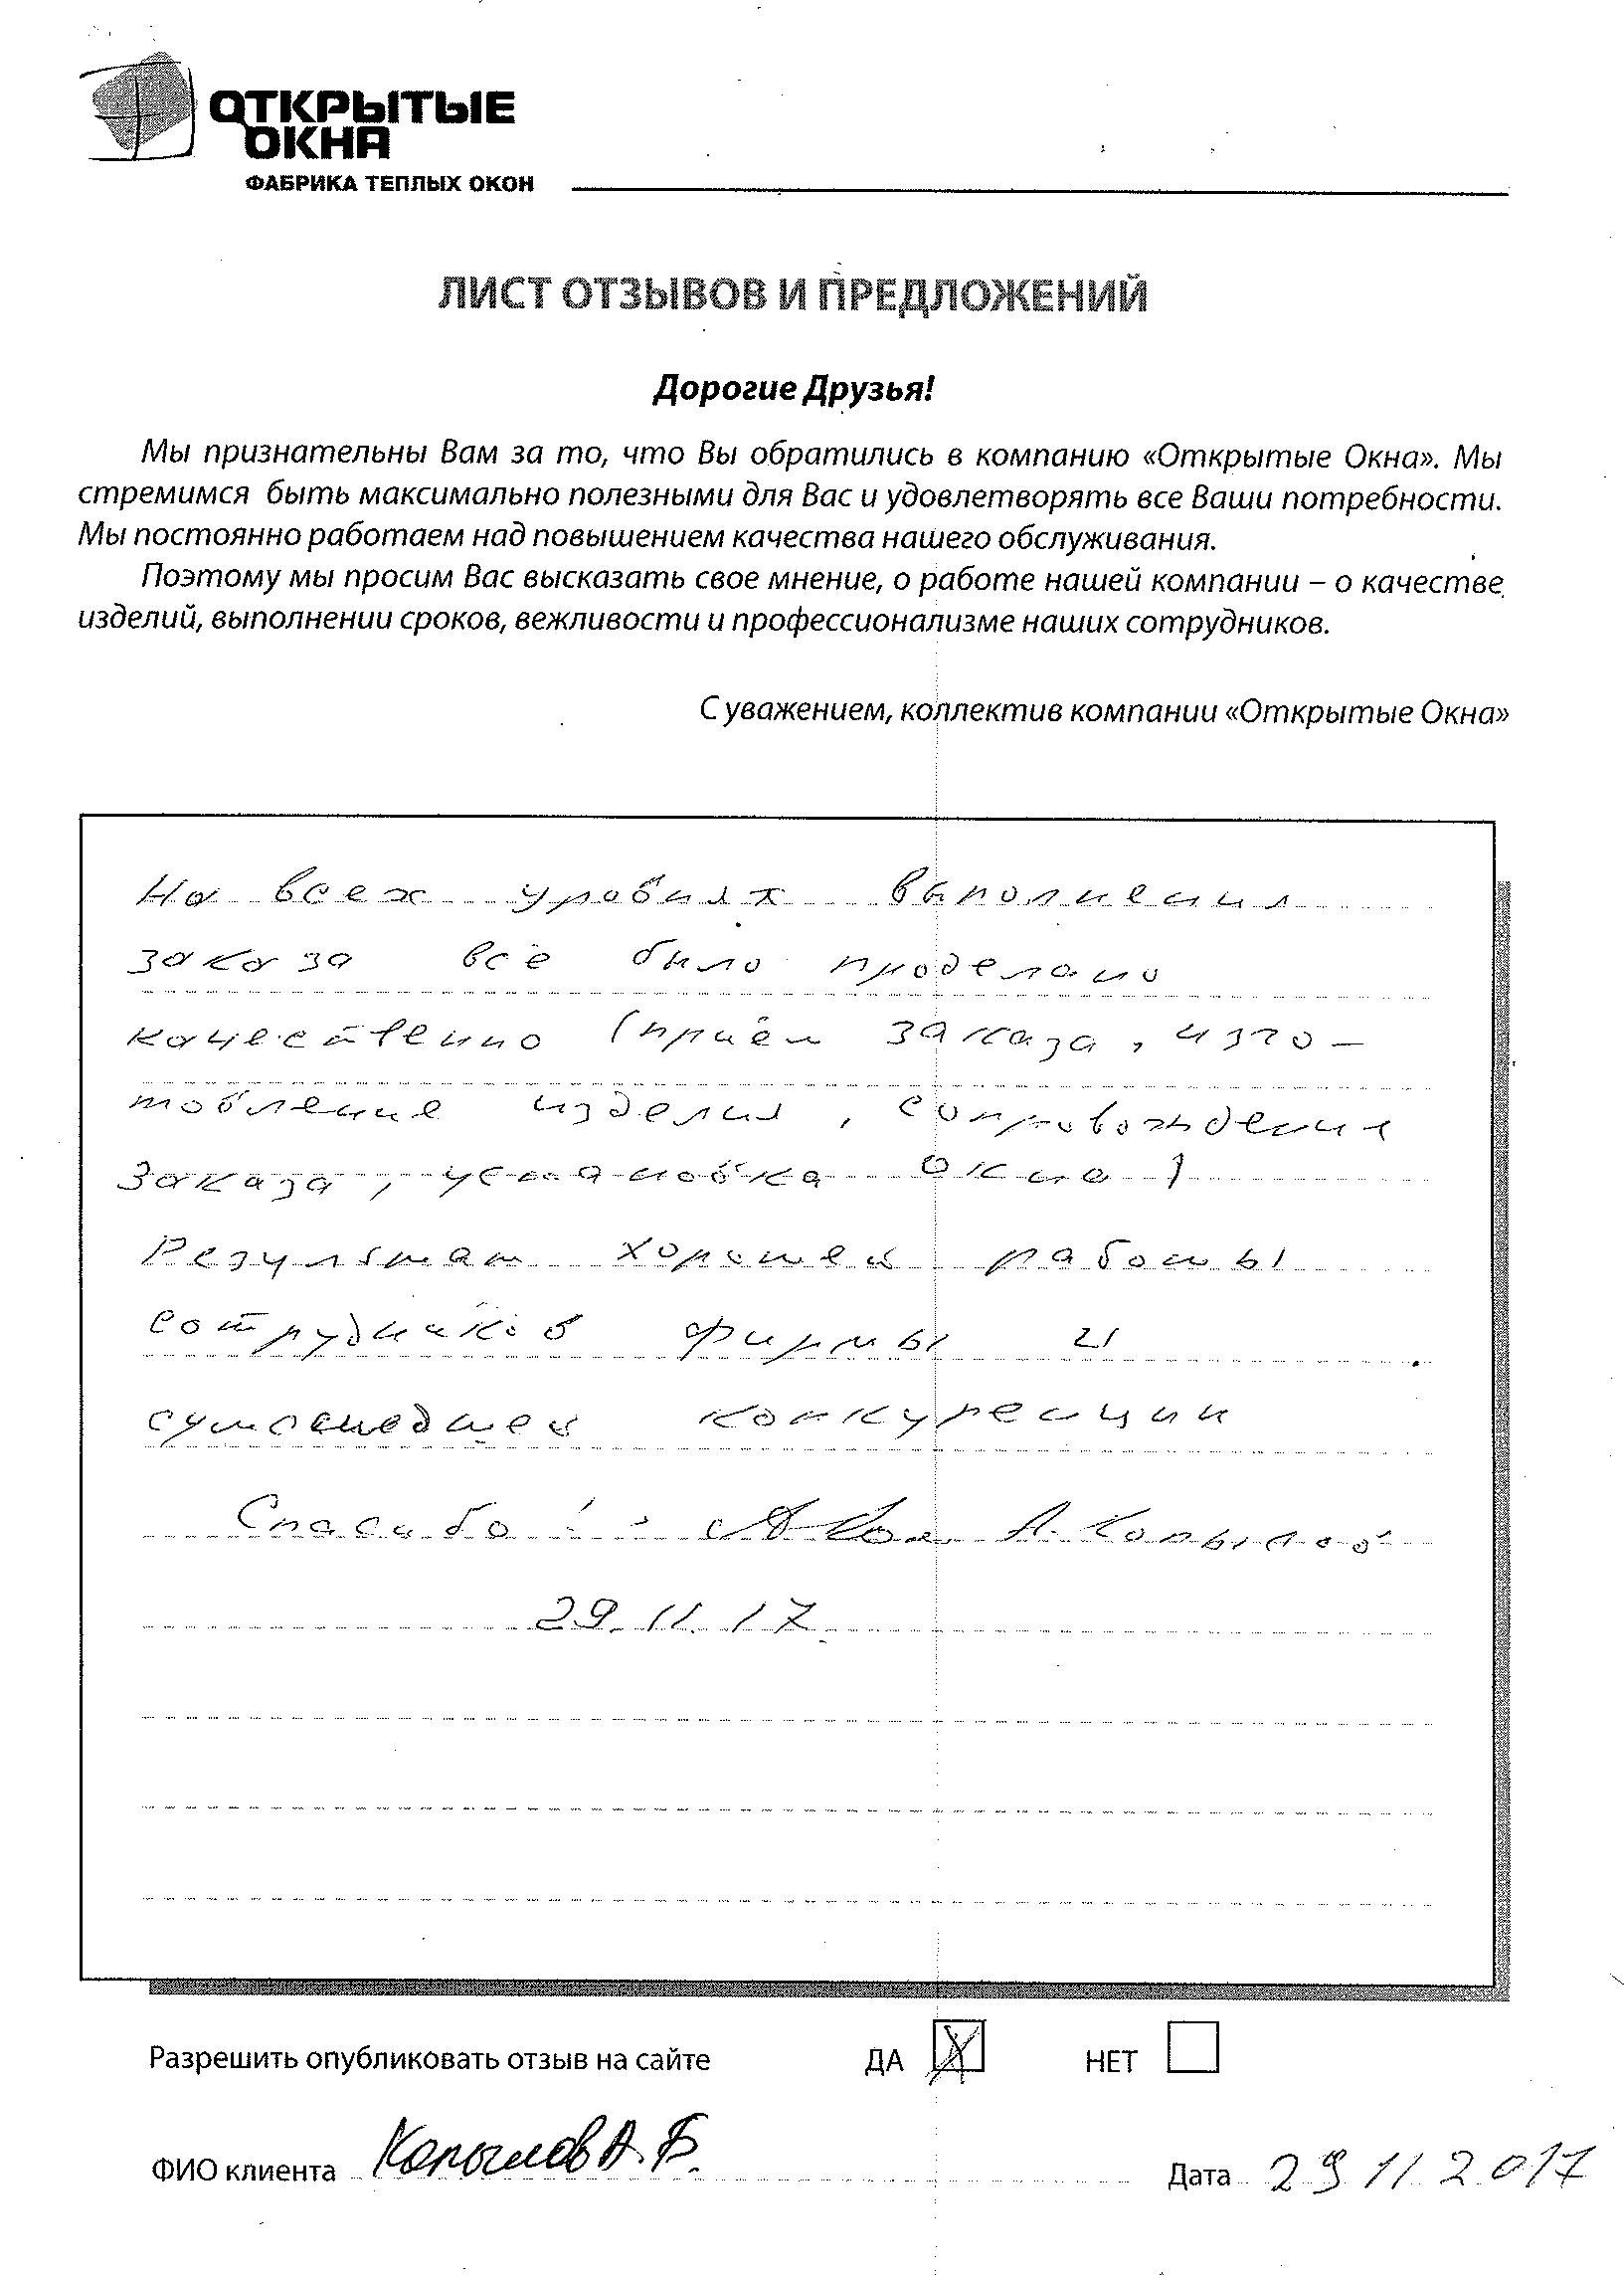 ОТКРЫТЫЕ
ОКНА
ФАБРИКА ТЕПЛЫХ ОКОН
ЛИСТ ОТЗЫВОВ И ПРЕДЛОЖЕНИЙ
Дорогие Друзья!
Мы признательны Вам за то, что Вы обратились в компанию «Открытые Окна». Мы
стремимся быть максимально полезными для Вас и удовлетворять все Ваши потребности.
Мы постоянно работаем над повышением качества нашего обслуживания.
Поэтому мы просим Вас высказать свое мнение, о работе нашей компании – о качестве
изделий, выполнении сроков, вежливости и профессионализме наших сотрудников.
С уважением, коллектив компании «Открытые Окна»
На всех уровнях выполнения
заказа всё было проделано
качественно (приём заказа, изго-
товление изделия, сопровождение
заказа, установка окна)
Результат хорошей работы
сотрудников фирмы и
сумасшедшей конкуренции
Спасибо! А. Копылов
29.11.17
Разрешить опубликовать отзыв на сайте ДА X НЕТ
ФИО клиента Копылов А.Б. Дата 29 11 2017